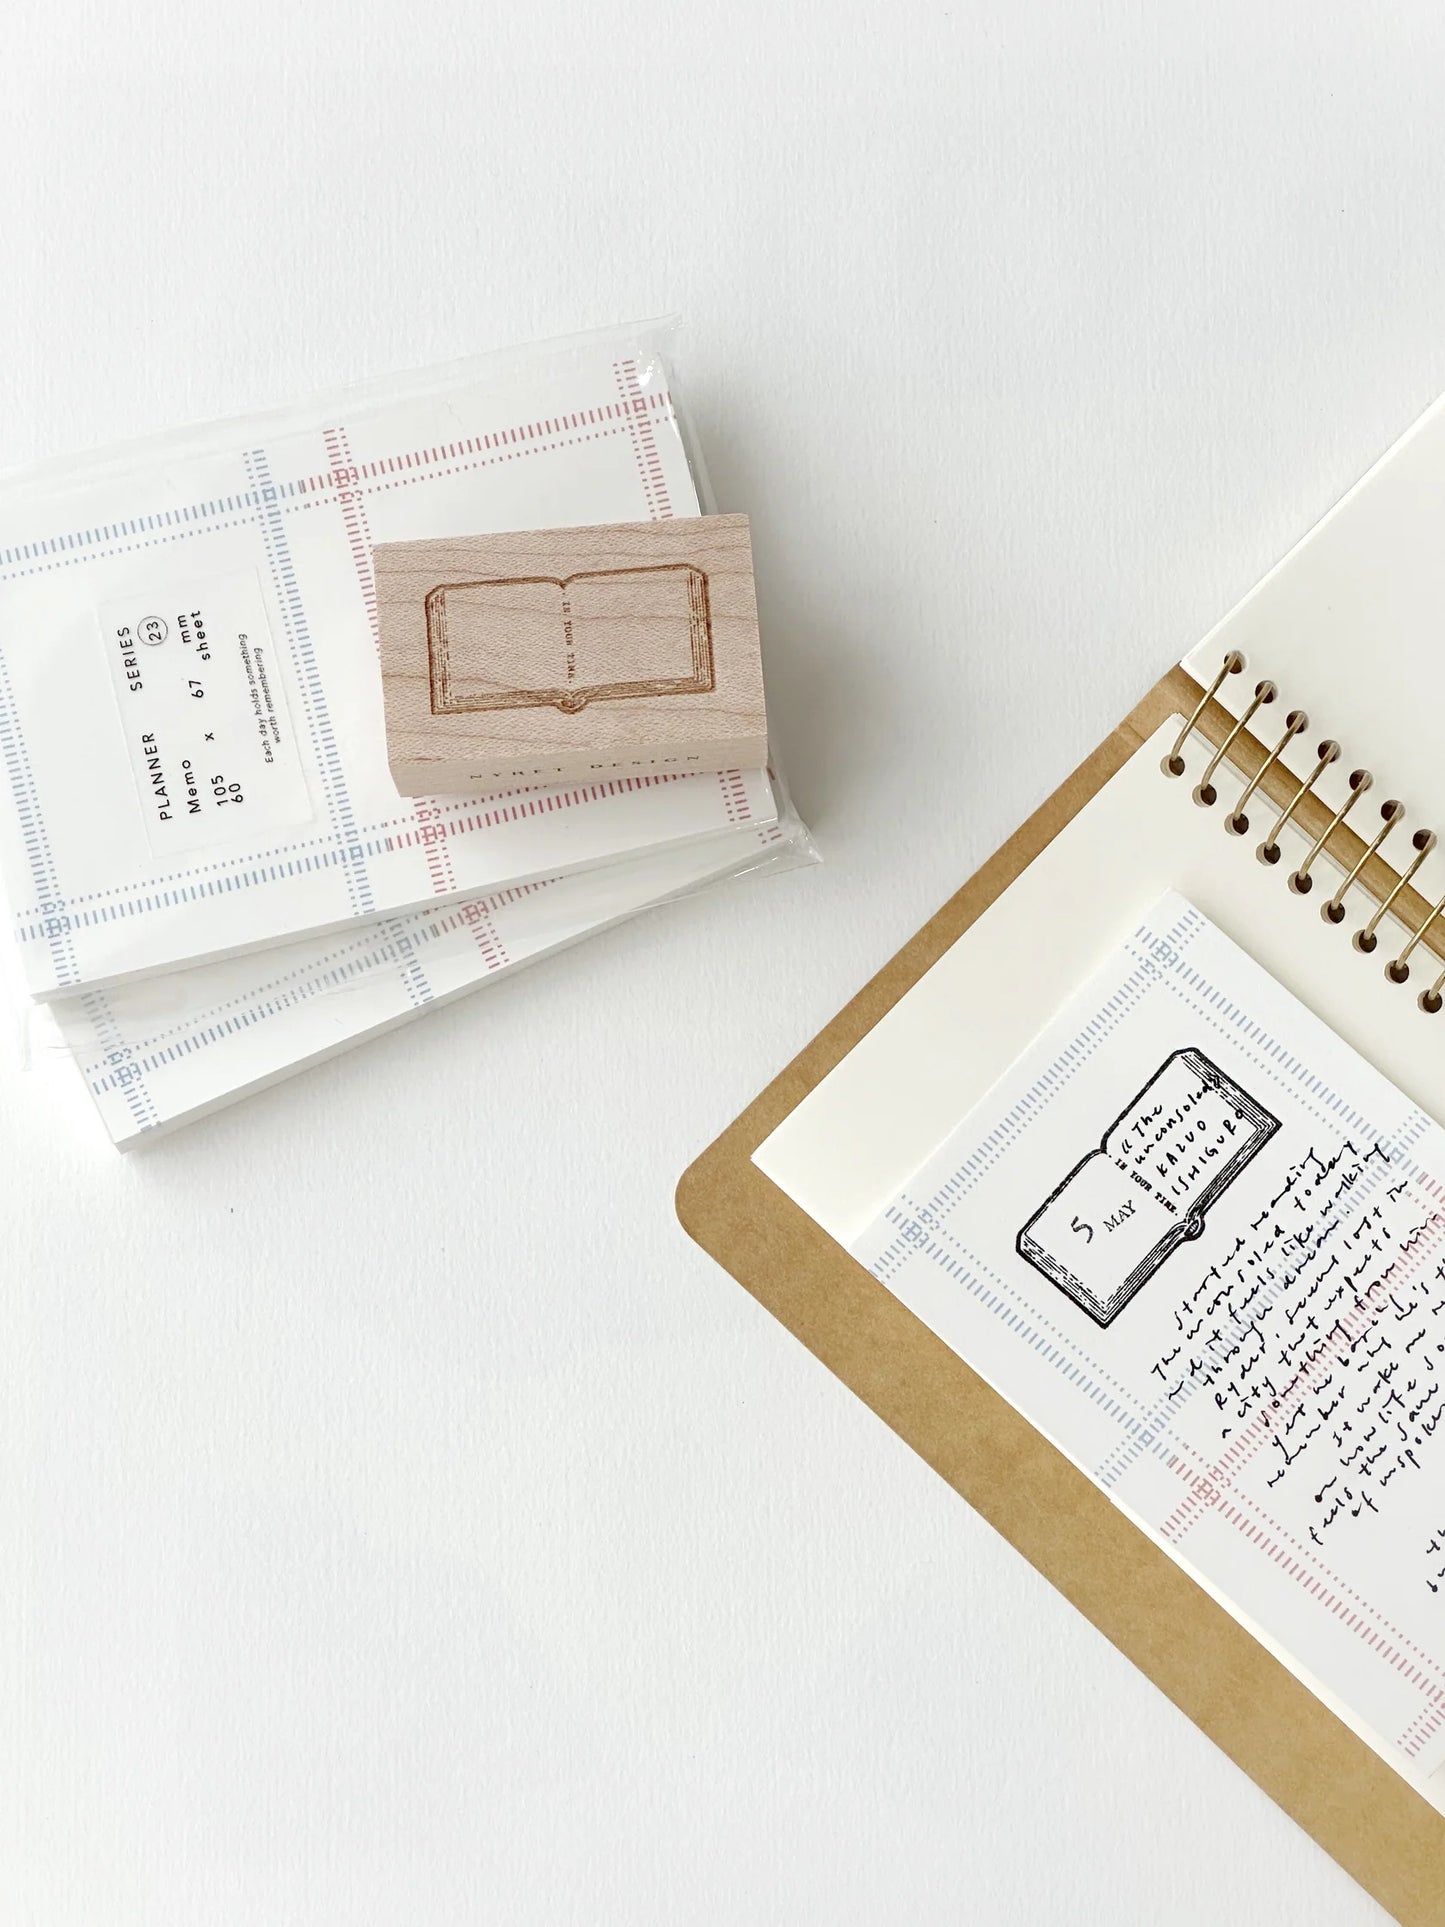 PLANNER SERIES 23
Memo
105 x 67 mm
60 sheet
Each day holds something
worth remembering
IN YOUR TIME.
NYRET DESIGN
5 MAY
IN YOUR TIME.
《The
unconsoled》
KAZUO
ISHIGURO
started reading
The unconsoled today
and it feels like walking
through a dream.
Ryder, seems lost in
a city that expects
something from him
yet he
number why he's
It make me
on how life
feels the same
of unspoken